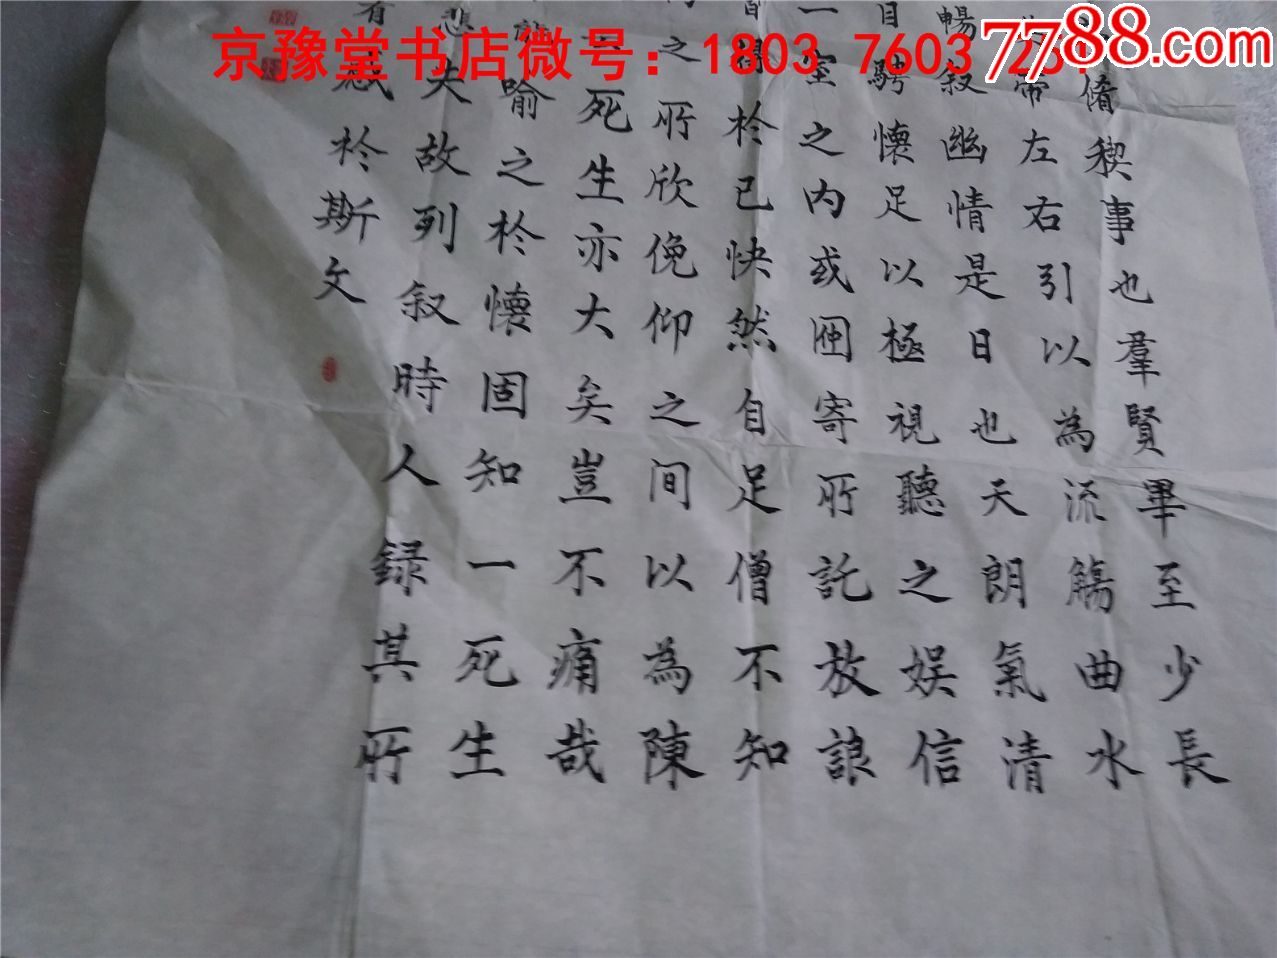 京豫堂书店微号：1803 7603
7788.com
脩稧事也羣賢畢至少長
帶左右引以為流觴曲水
暢叙幽情是日也天朗氣清
目騁懷足以極視聽之娱信
一室之内或因寄所託放浪
得於己快然自足僧不知
之所欣俛仰之间以為陳
死生亦大矣豈不痛哉
喻之於懷固知一死生
悲夫故列叙時人録其所
有感於斯文